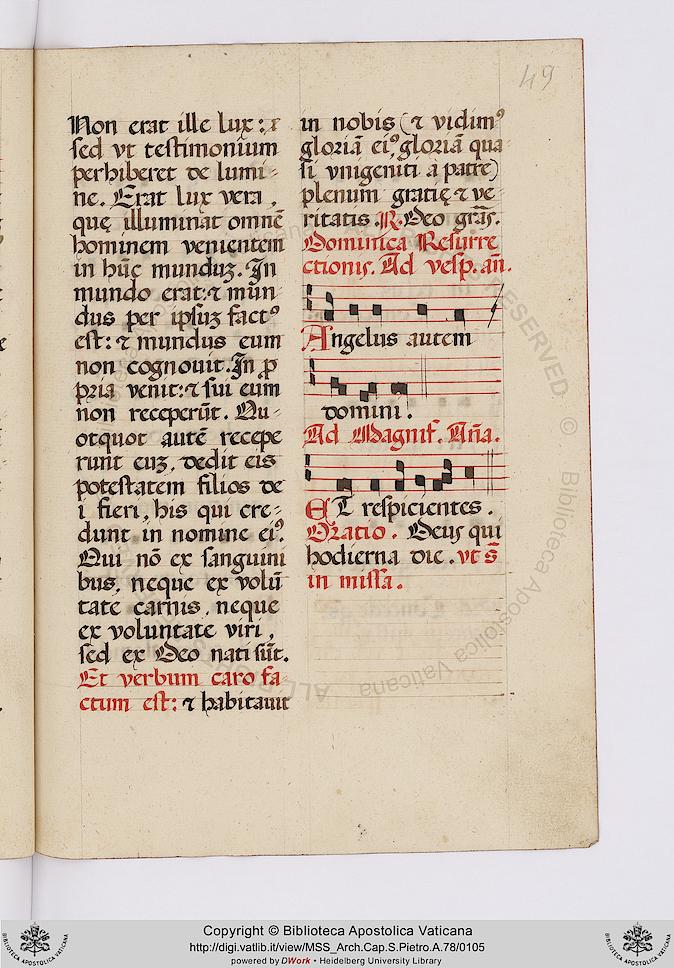 49
Non erat ille lux:
sed vt testimonium
perhiberet de lumi-
ne. Erat lux vera,
quę illuminat omnē
hominem venientem
in hūc munduꝫ. In
mundo erat: ⁊ mun-
dus per ipsuꝫ factꝰ
est: ⁊ mundus eum
non cognouit. In ꝓ
pria venit: ⁊ sui eum
non receperūt. Qu-
otquot autē recepe
runt euꝫ, dedit eis
potestatem filios de
i fieri, his qui cre-
dunt in nomine eiꝰ.
Qui nō ex sanguini
bus, neque ex volū
tate carnis, neque
ex voluntate viri,
sed ex Deo nati sūt.
Et verbum caro fa-
ctum est: ⁊ habitauit
in nobis (⁊ vidimꝰ
gloriā eiꝰ gloriā qua-
si vnigeniti à patre)
plenum gratię ⁊ ve-
ritatis. R. Deo grās.
Dominica Resurre
ctionis. Ad vesp. an̄.
Angelus autem
domini.
Ad Magnif. Aña.
ET respicientes.
Oratio. Deus qui
hodierna die. vt s̄
in missa.
Copyright © Biblioteca Apostolica Vaticana
http://digi.vatlib.it/view/MSS_Arch.Cap.S.Pietro.A.78/0105
powered by DWork • Heidelberg University Library
BIBLIOTECA APOSTOLICA VATICANA
BIBLIOTECA APOSTOLICA VATICANA